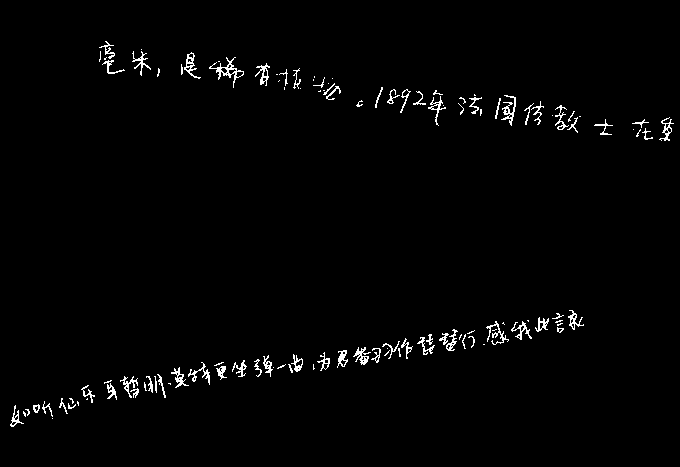 毫米，是稀有植物。1892年法国传教士在
如听仙乐耳暂明.莫辞更坐弹一曲,为君翻作琵琶行.感我此言良